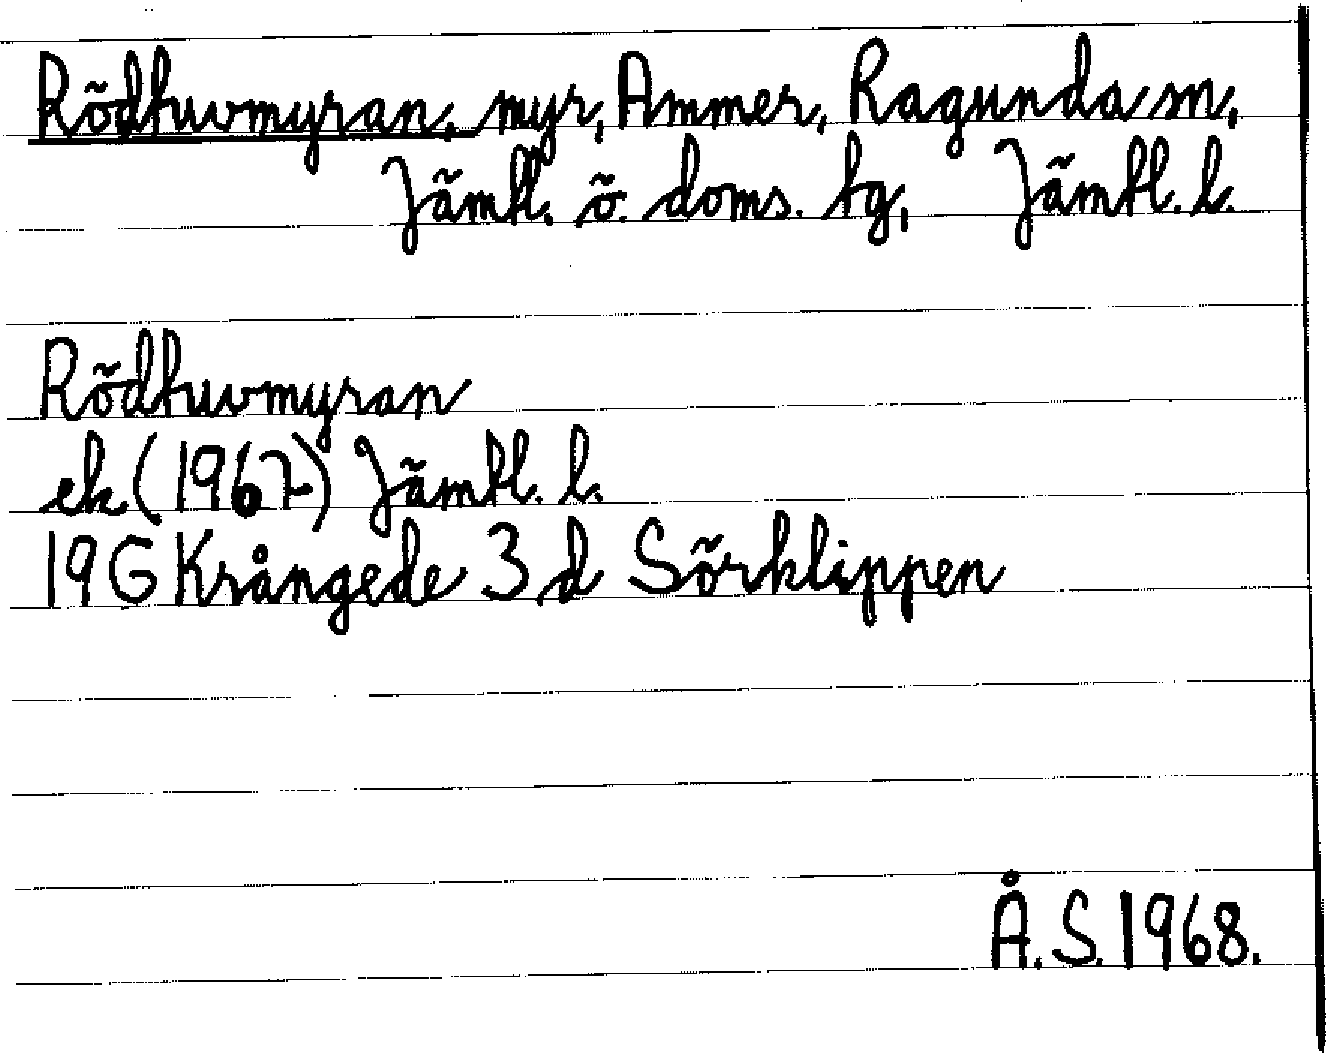 Rödhuvmyran, myr, Ammer, Ragunda sn,
Jämtl. ö. doms. tg, Jämtl. l.
Rödhuvmyran
ek (1967) Jämtl. l.
19G Krångede 3 d Sörklippen
Å.S. 1968.